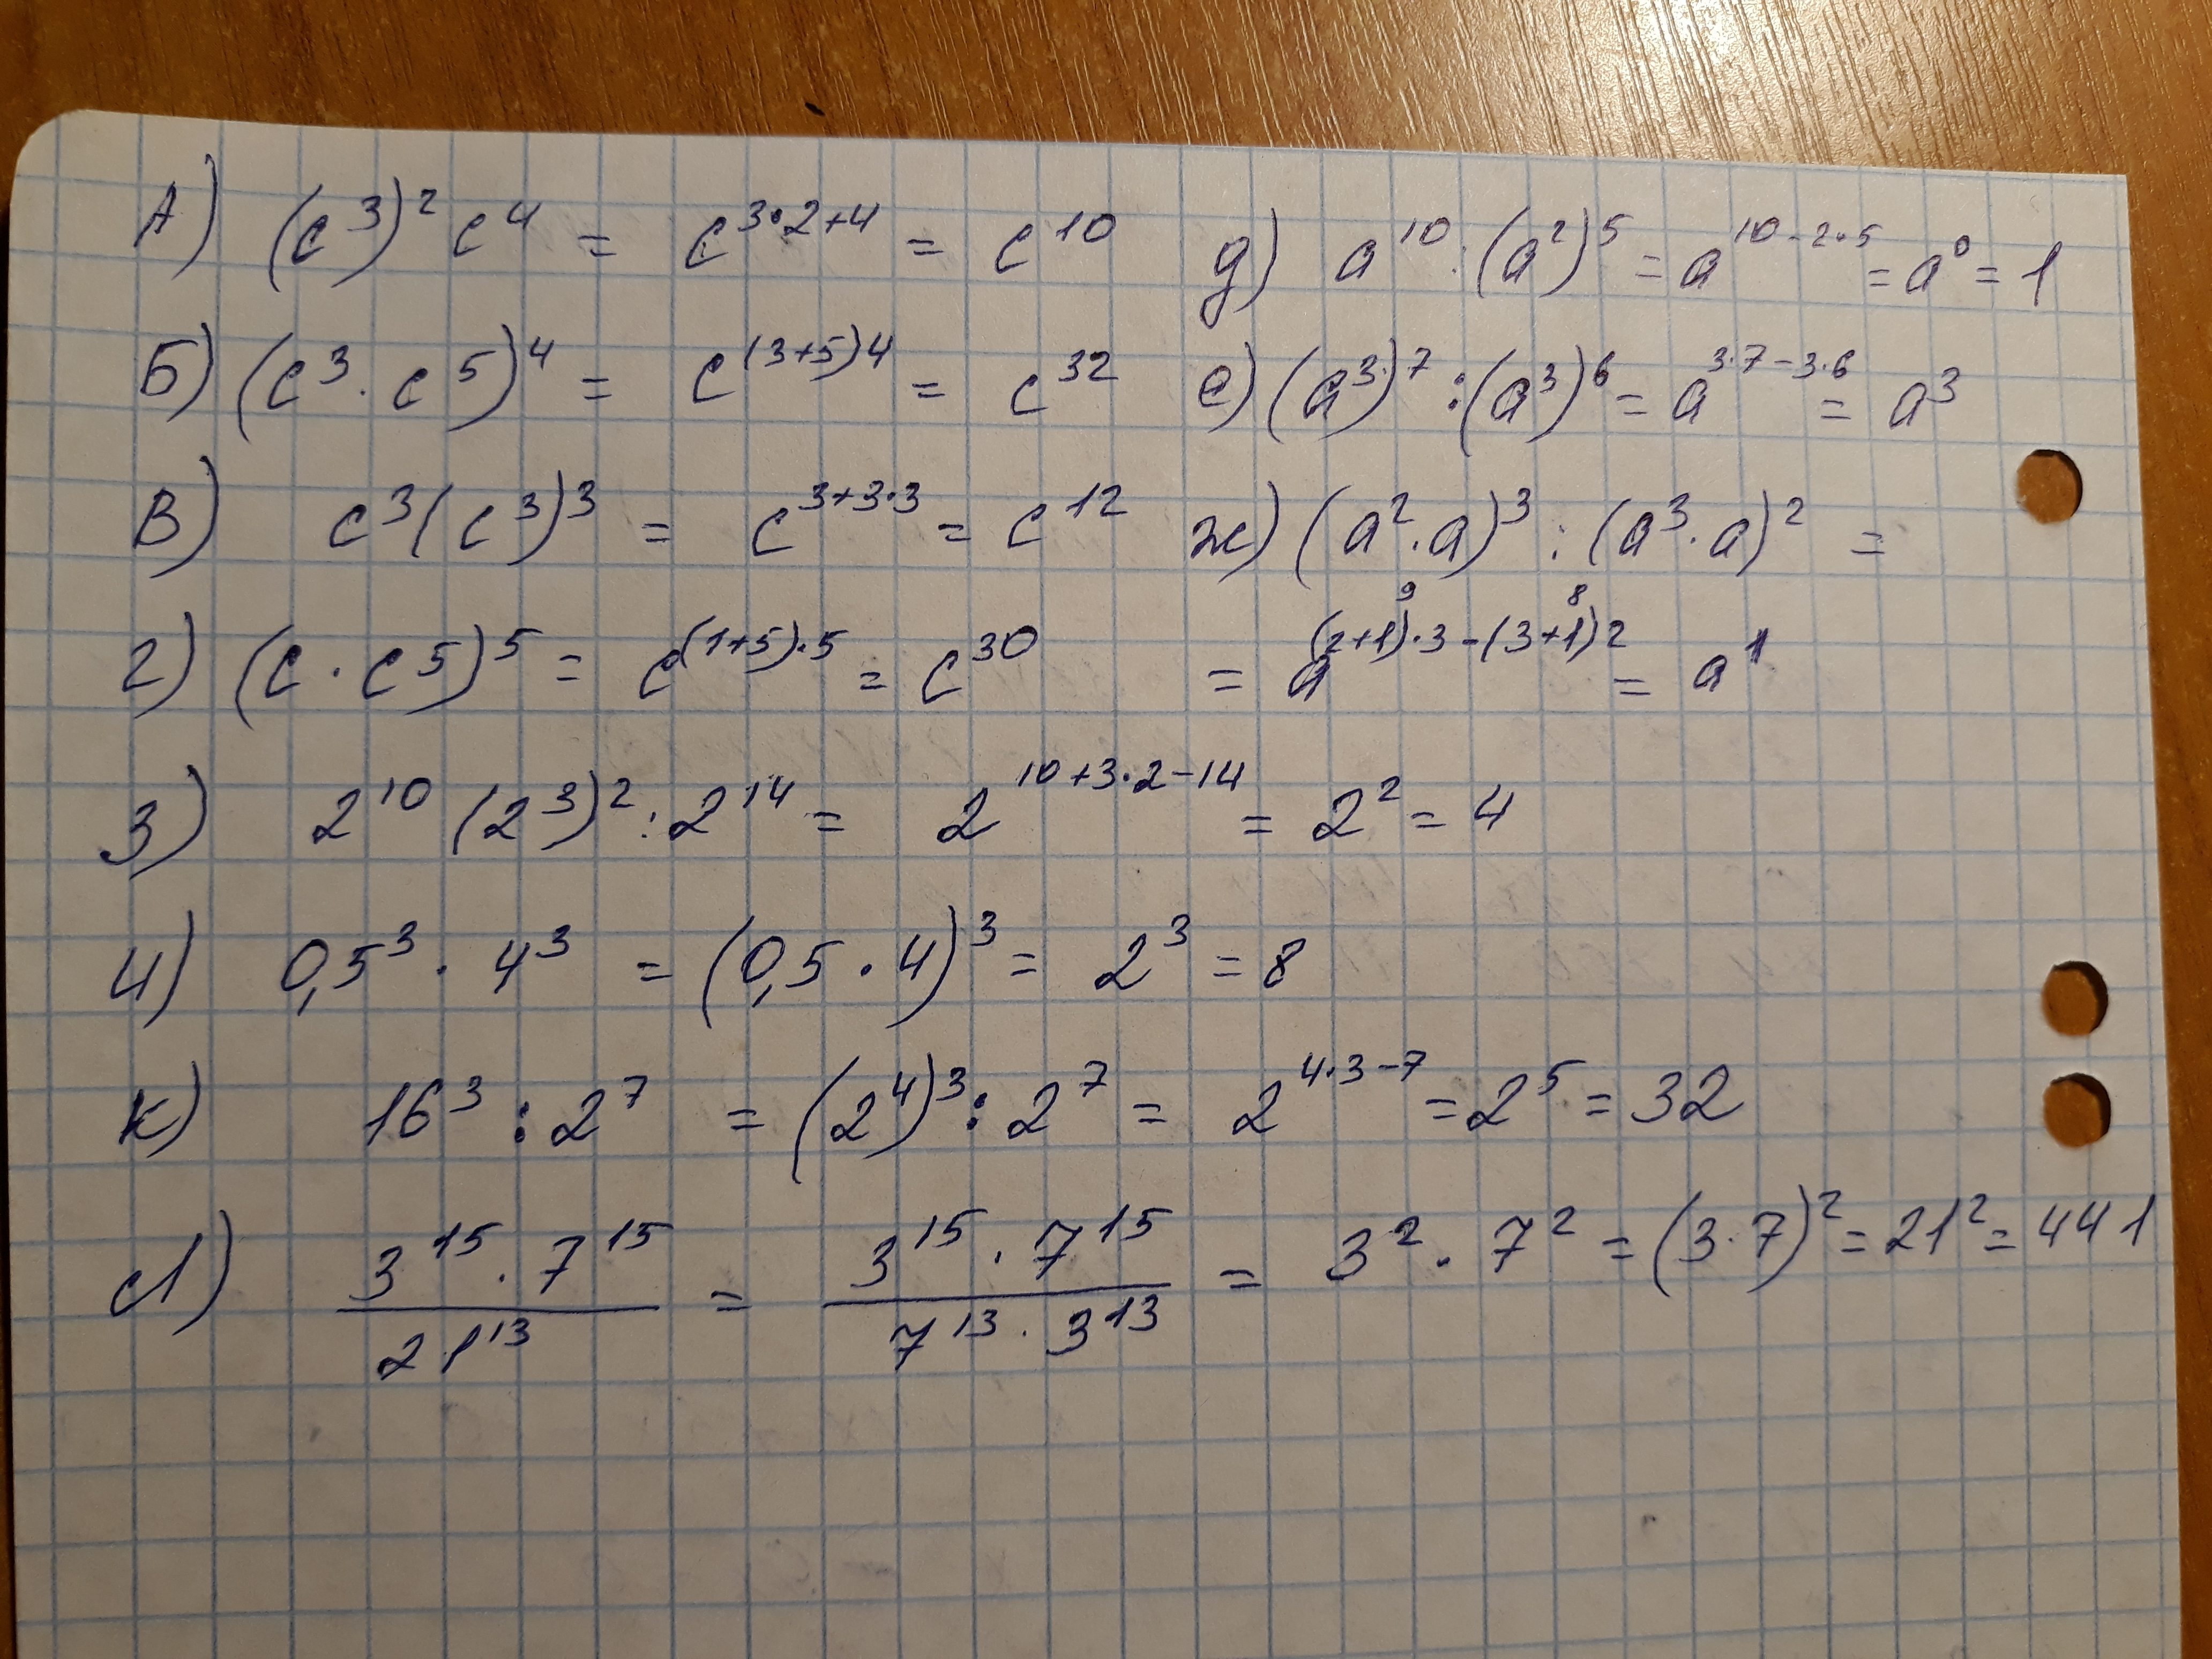 А) (c³)² c⁴ = c^{3·2+4} = c¹⁰
Б) (c³ · c⁵)⁴ = c^{(3+5)4} = c³²
В) c³(c³)³ = c^{3+3·3} = c¹²
г) (c · c⁵)⁵ = c^{(1+5)·5} = c³⁰
д) a¹⁰ : (a²)⁵ = a^{10-2·5} = a⁰ = 1
е) (a³)⁷ : (a³)⁶ = a^{3·7-3·6} = a³
ж) (a² · a)³ : (a³ · a)² =
9 8
= a^{(2+1)·3-(3+1)2} = a¹
з) 2¹⁰ (2³)² : 2¹⁴ = 2^{10+3·2-14} = 2² = 4
и) 0,5³ · 4³ = (0,5 · 4)³ = 2³ = 8
к) 16³ : 2⁷ = (2⁴)³ : 2⁷ = 2^{4·3-7} = 2⁵ = 32
л) \frac{3¹⁵ · 7¹⁵}{21¹³} = \frac{3¹⁵ · 7¹⁵}{7¹³ · 3¹³} = 3² · 7² = (3·7)² = 21² = 441